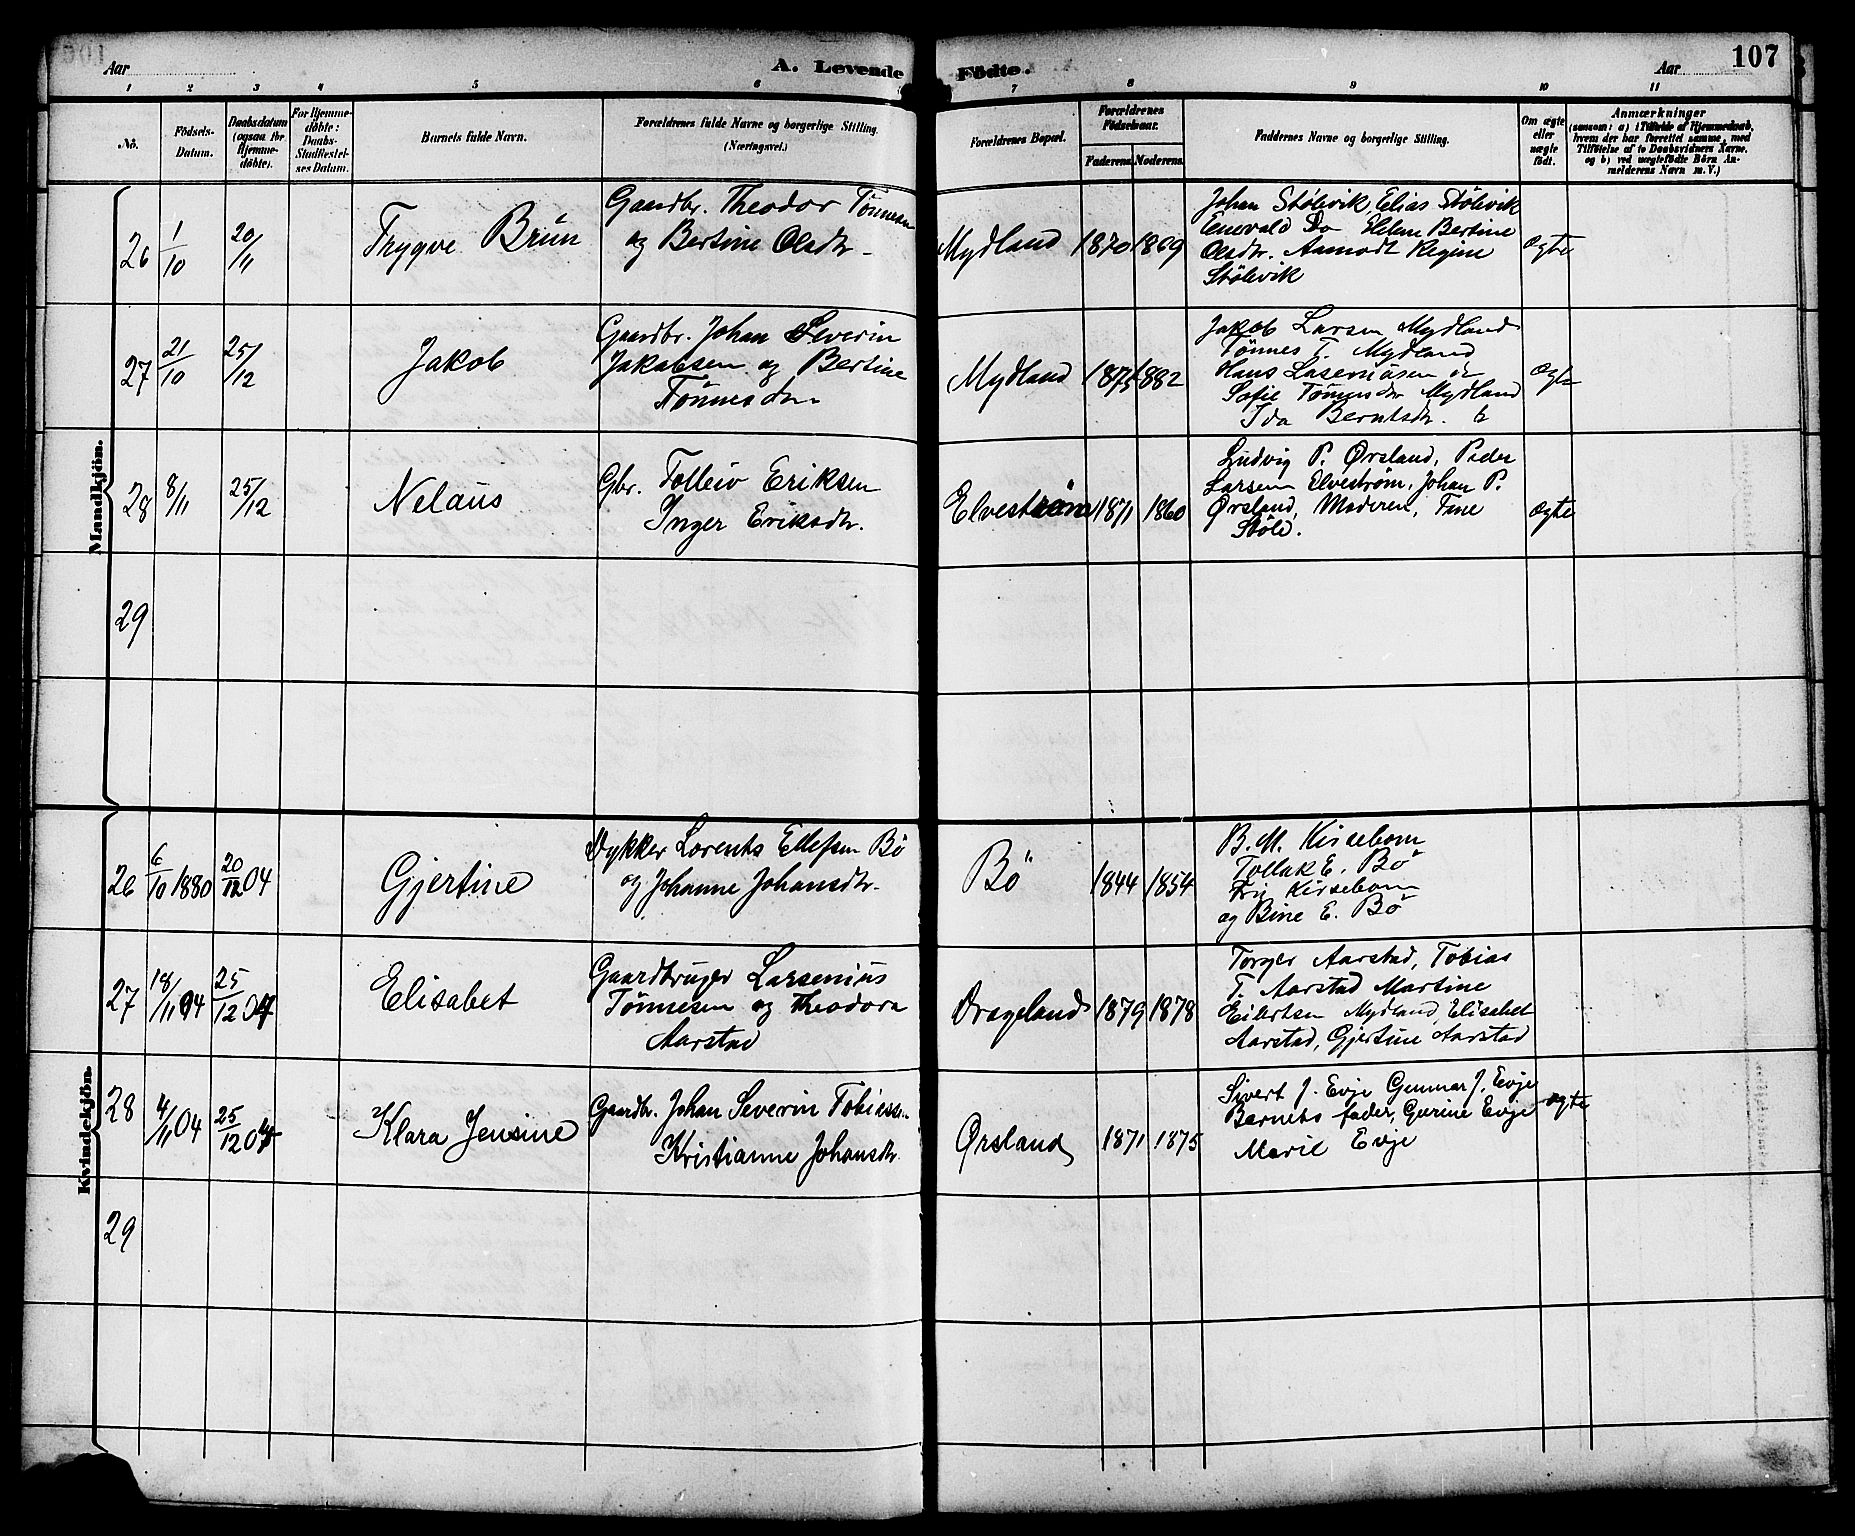 Aar
A. Levende Födte.
Aar
107
1 2 3 4 5 6 7 8 9 10 11
No.
Födsels-
Datum.
Daabsdatum
(ogsaa for
Hjemme-
døbte).
For Hjemme-
døbte:
Daabs-
Stadfæstel-
ses Datum.
Barnets fulde Navn.
Forældrenes fulde Navne og borgerlige Stilling.
(Næringsvei.)
Forældrenes Bopæl.
Forældrenes
Födselsaar.
Faderens. Moderens.
Faddernes Navne og borgerlige Stilling.
Om ægte
eller
uægte
födt.
Anmærkninger
(saasom: a) i Tilfælde af Hjemmedaab,
hvem der har forrettet samme, med
Tilföielse af to Daabsvidners Navne,
og b) ved uægtefödte Börn An-
melderens Navn m. V.)
Mandkjön.
26
1/10
20/11
Trygve Brün
Gaardbr. Theodor Tönnesen
og Bertine Olsdtr.
Mydland
1870
1869
Johan Stölevik, Elias Stölevik
Do Helene Bertine
Olsdtr. Aamodt Regine
Stölevik
ægte
27
21/10
25/12
Jakob
Gaardbr. Johan Severin
Jakobsen og Bertine
Tönnesdtr.
Mydland
1875
1882
Jakob Larsen Mydland
Tönnes T. Mydland
Hans Laseniusen
Sofie Tönnesdtr Mydland
Ida Berntsdtr.
ægte
28
8/11
25/12
Nelaus
Gbr. Tolleiv Eriksen
Inger Eriksdtr.
Elveström
1871
1860
Ludvig P. Ørsland, Peder
Larsen Elveström, Johan P.
Ørsland, Moderen, Tine
Stöle.
ægte
29
Kvindekjön.
26
6/10 1880
20/12 04
Gjertine
Dykker Lorents Ellefsen Bö
og Johanne Johansdtr.
Bö
1844
1854
B. M. Kirsebom
Tollak E. Bö
Fru Kirsebom
og Bine E. Bö
27
18/11 04
25/12 04
Elisabet
Gaardbruger Larsenius
Tönnesen og Theodora
Aarstad
Drageland
1879
1878
Torger Aarstad, Tobias
T. Aarstad Martine
Eilertsen Mydland, Elisabet
Aarstad, Gjertine Aarstad
28
4/11 04
25/12 04
Klara Jensine
Gaardbr. Johan Severin Tobiass.
Kristianne Johansdtr.
Ørsland
1871
1875
Sivert J. Evje Gunnar J. Evje
Barnets fader, Gurine Evje
Marie Evje
ægte
29